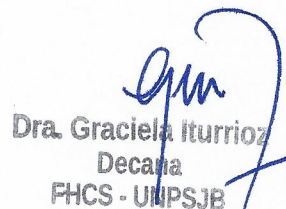 Dra. Graciela Iturrioz
Decana
FHCS - UNPSJB